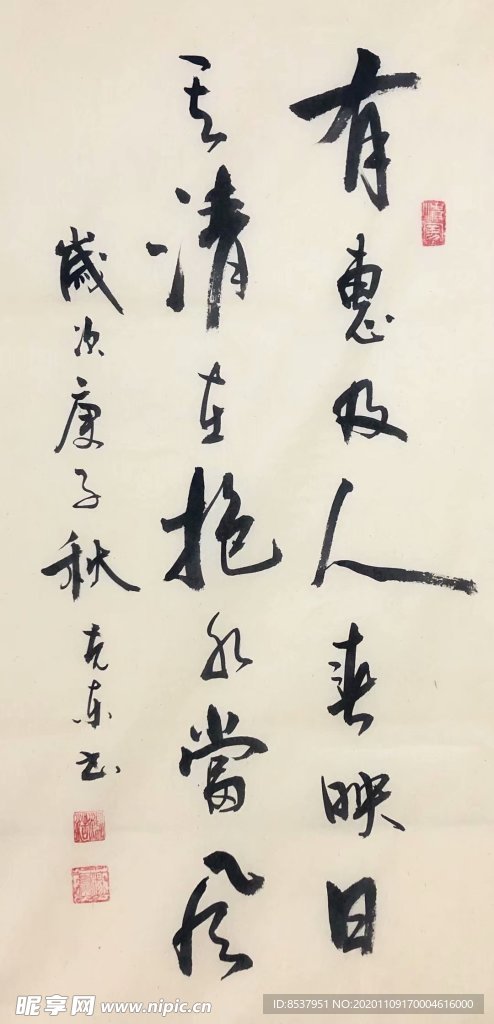 有惠及人春映日
其清在抱水當風
歲次庚子秋克東書
昵享网 www.nipic.cn
ID:8537951 NO:20201109170004616000